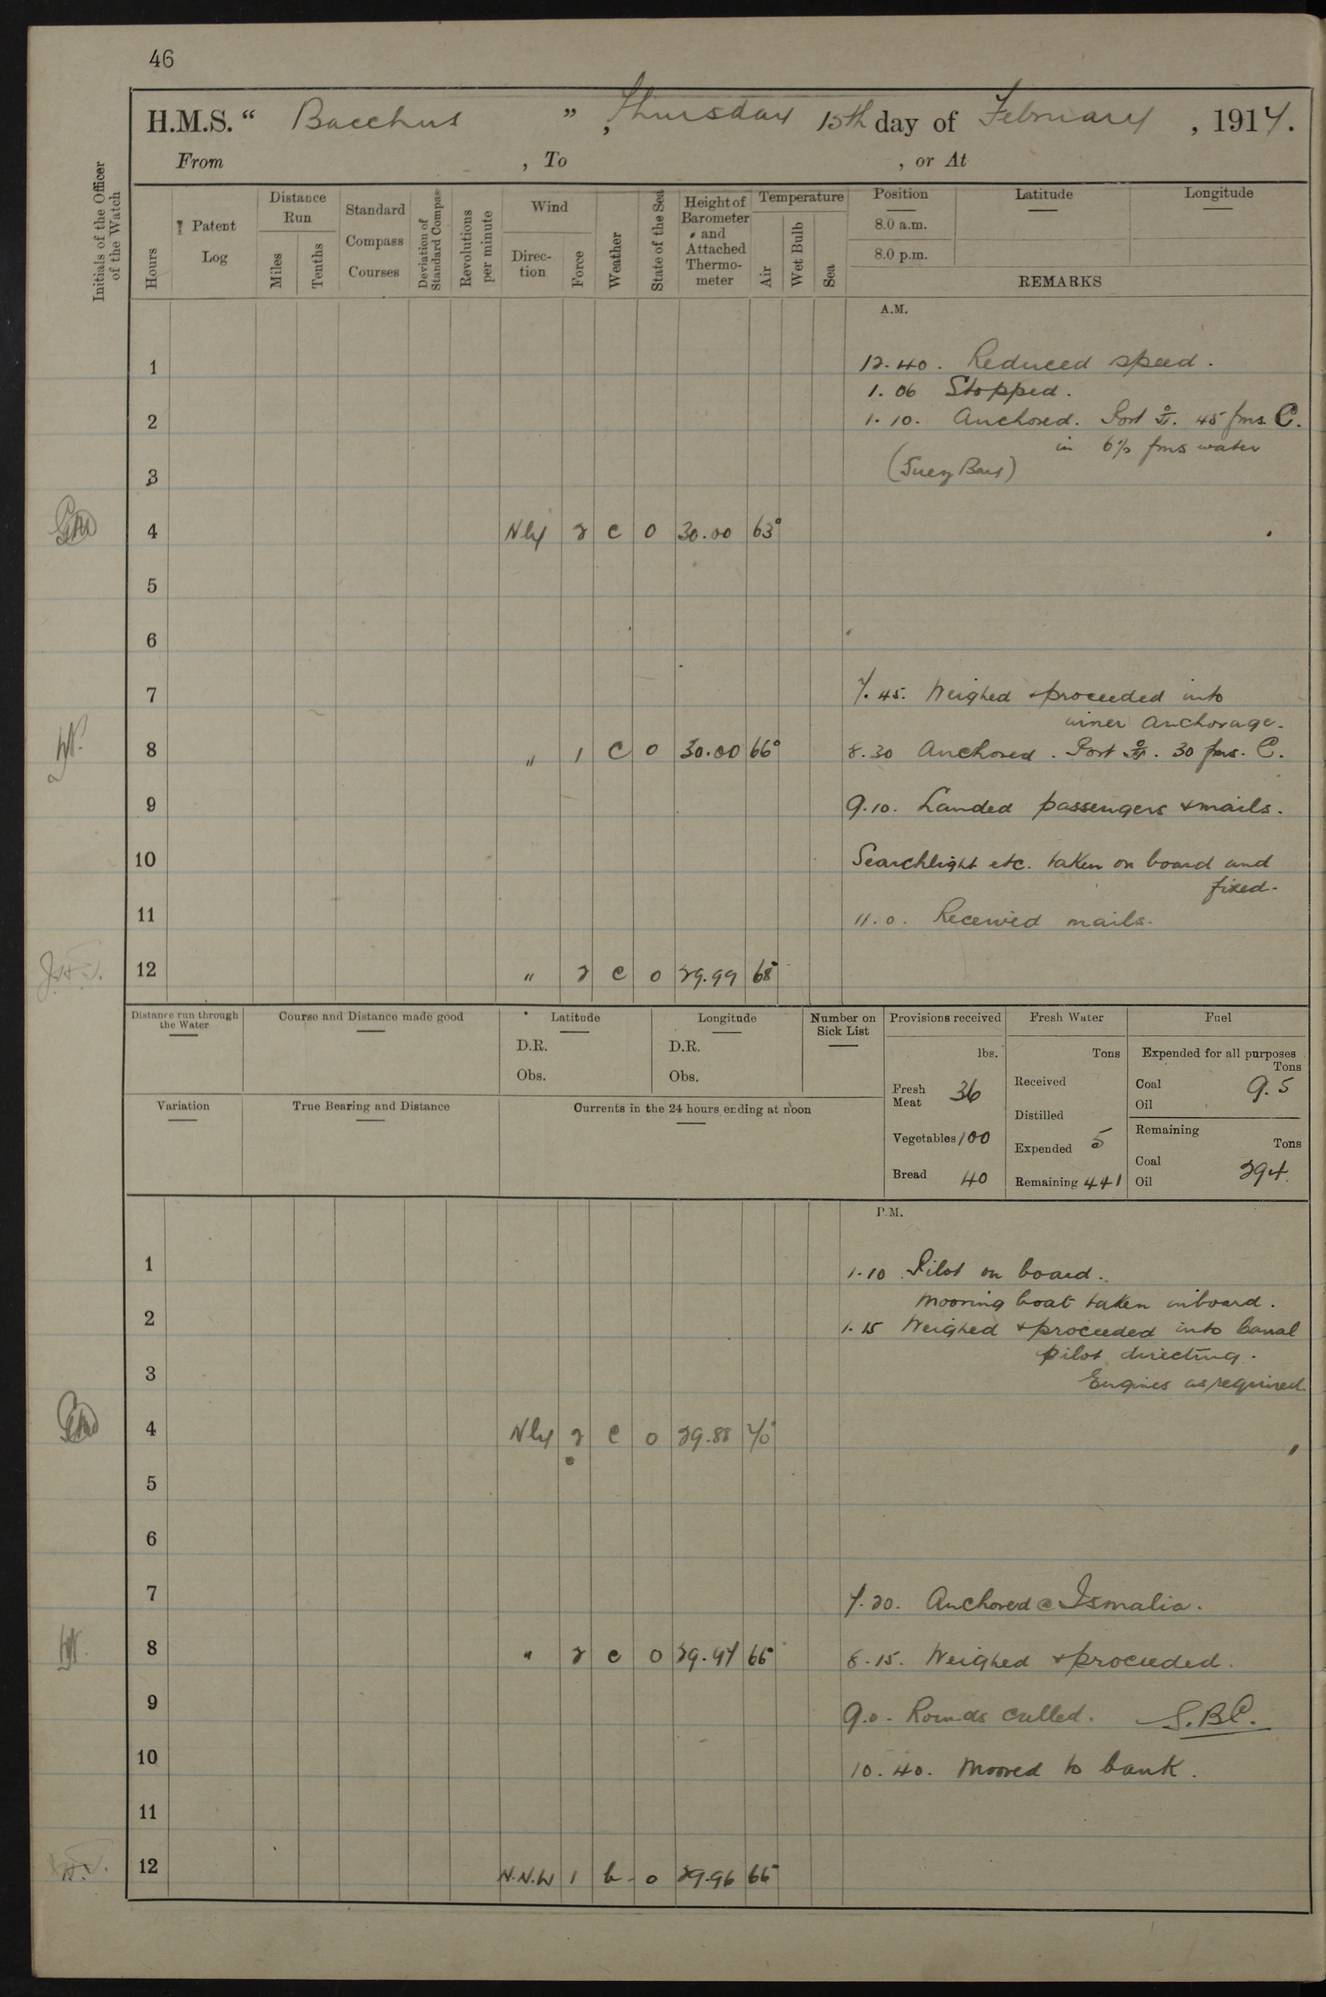 46
H.M.S. “ Bacchus ”, Thursday 15th day of February , 1917.
From , To , or At
Initials of the Officer of the Watch
Hours
Patent Log
Distance Run
Miles
Tenths
Standard Compass Courses
Deviation of Standard Compass
Revolutions per minute
Wind
Direction
Force
Weather
State of the Sea
Height of Barometer and Attached Thermometer
Temperature
Air
Wet Bulb
Sea
Position
Latitude
Longitude
8.0 a.m.
8.0 p.m.
REMARKS
A.M.
1 12.40. Reduced speed.
1.06 Stopped.
2 1.10. Anchored. Port 45 fms. C.
in 6½ fms water
3 (Suez Bay)
4 Nly 2 c 0 30.00 63°
5
6
7 7.45. Weighed & proceeded into
inner anchorage.
8 " 1 C 0 30.00 66° 8.30 Anchored. Port 30 fms. C.
9 9.10. Landed passengers & mails.
10 Searchlight etc. taken on board and
fixed.
11 11.0. Received mails.
12 " 2 c 0 29.99 68°
Distance run through the Water
Course and Distance made good
Latitude
D.R.
Obs.
Longitude
D.R.
Obs.
Number on Sick List
Provisions received
lbs.
Fresh Meat 36
Vegetables 100
Bread 40
Fresh Water
Tons
Received
Distilled
Expended 5
Remaining 441
Fuel
Expended for all purposes
Tons
Coal 9.5
Oil
Remaining
Tons
Coal 294.
Oil
Variation
True Bearing and Distance
Currents in the 24 hours ending at noon
P.M.
1 1.10 Pilot on board.
Mooring boat taken inboard.
2 1.15 Weighed & proceeded into Canal
pilot directing.
3 Engines as required
4 Nly 2 c 0 29.88 70°
5
6
7 7.20. Anchored @ Ismalia.
8 " 2 c 0 29.97 66° 8.15. Weighed & proceeded.
9 9.0. Rounds called. S.B.C.
10 10.40. Moored to bank.
11
12 N.N.W 1 b 0 29.96 66°